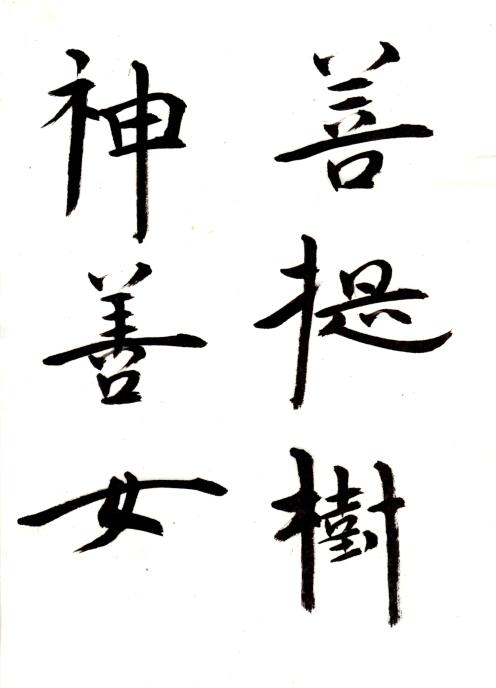 菩提樹
神善女